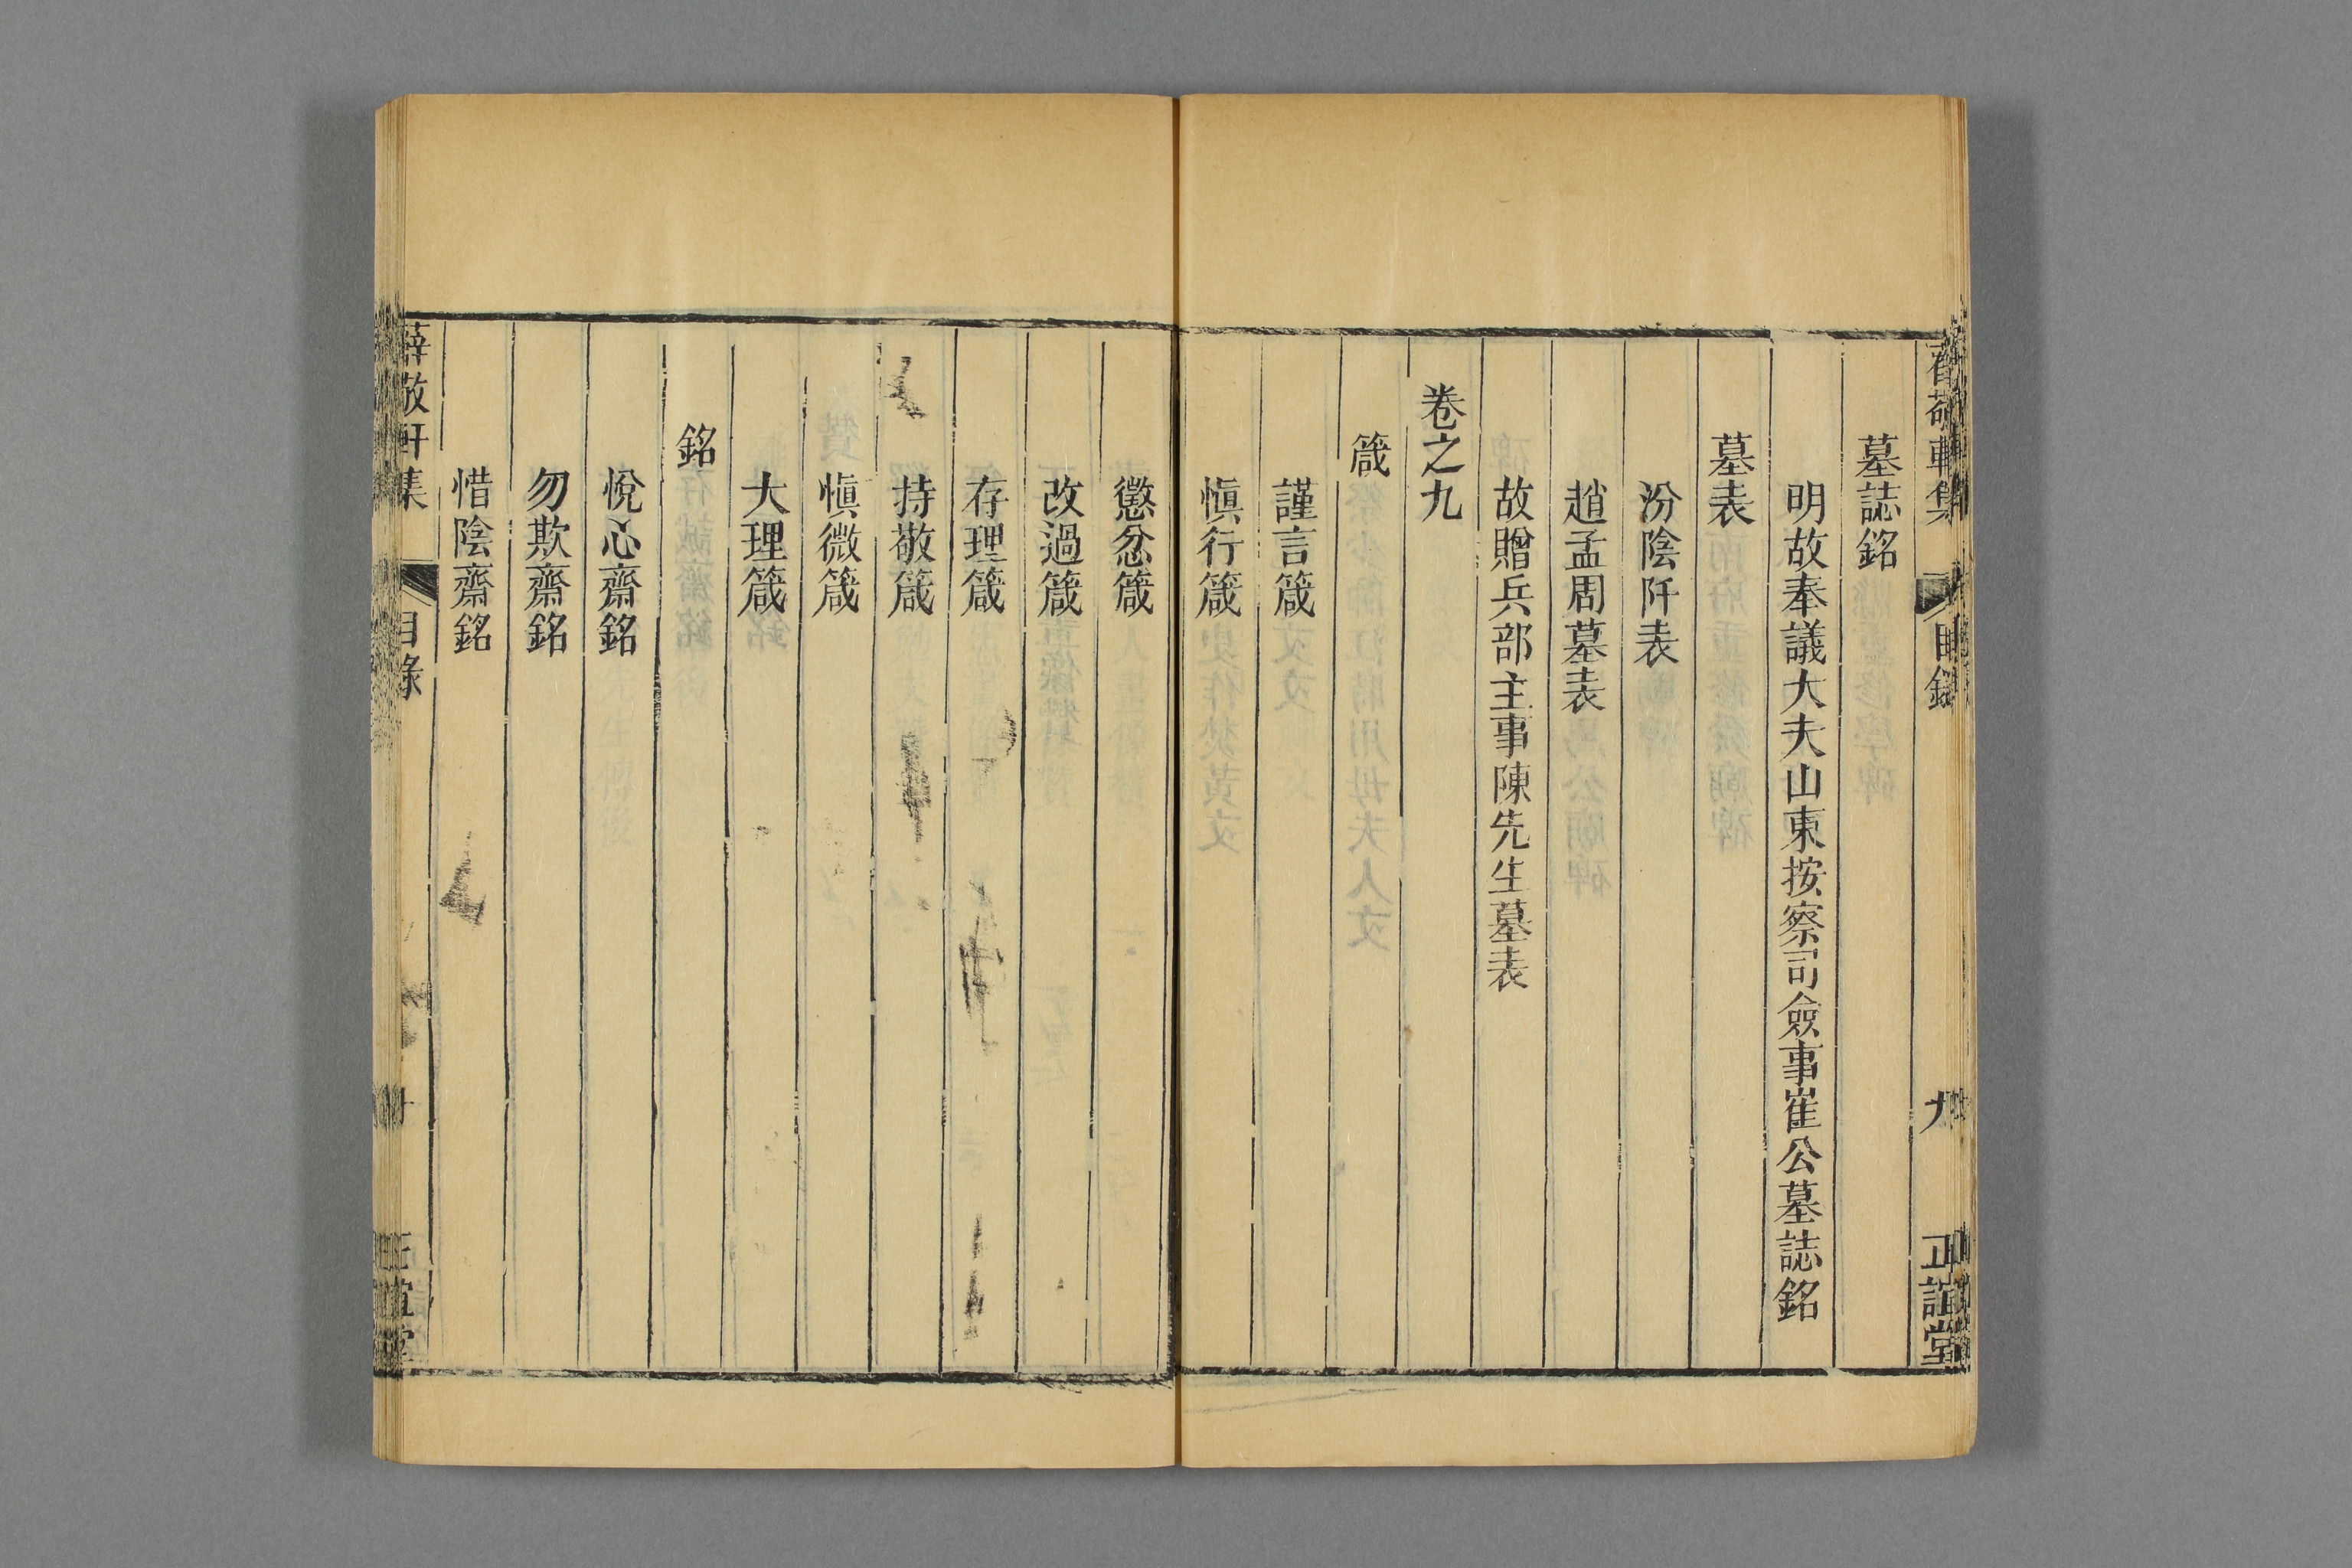 薛敬軒集 目錄 九 正誼堂
墓誌銘
明故奉議大夫山東按察司僉事崔公墓誌銘
墓表
汾陰阡表
趙孟周墓表
故贈兵部主事陳先生墓表
卷之九
箴
謹言箴
慎行箴
懲忿箴
改過箴
存理箴
持敬箴
慎微箴
大理箴
銘
悅心齋銘
勿欺齋銘
惜陰齋銘
薛敬軒集 目錄 正誼堂